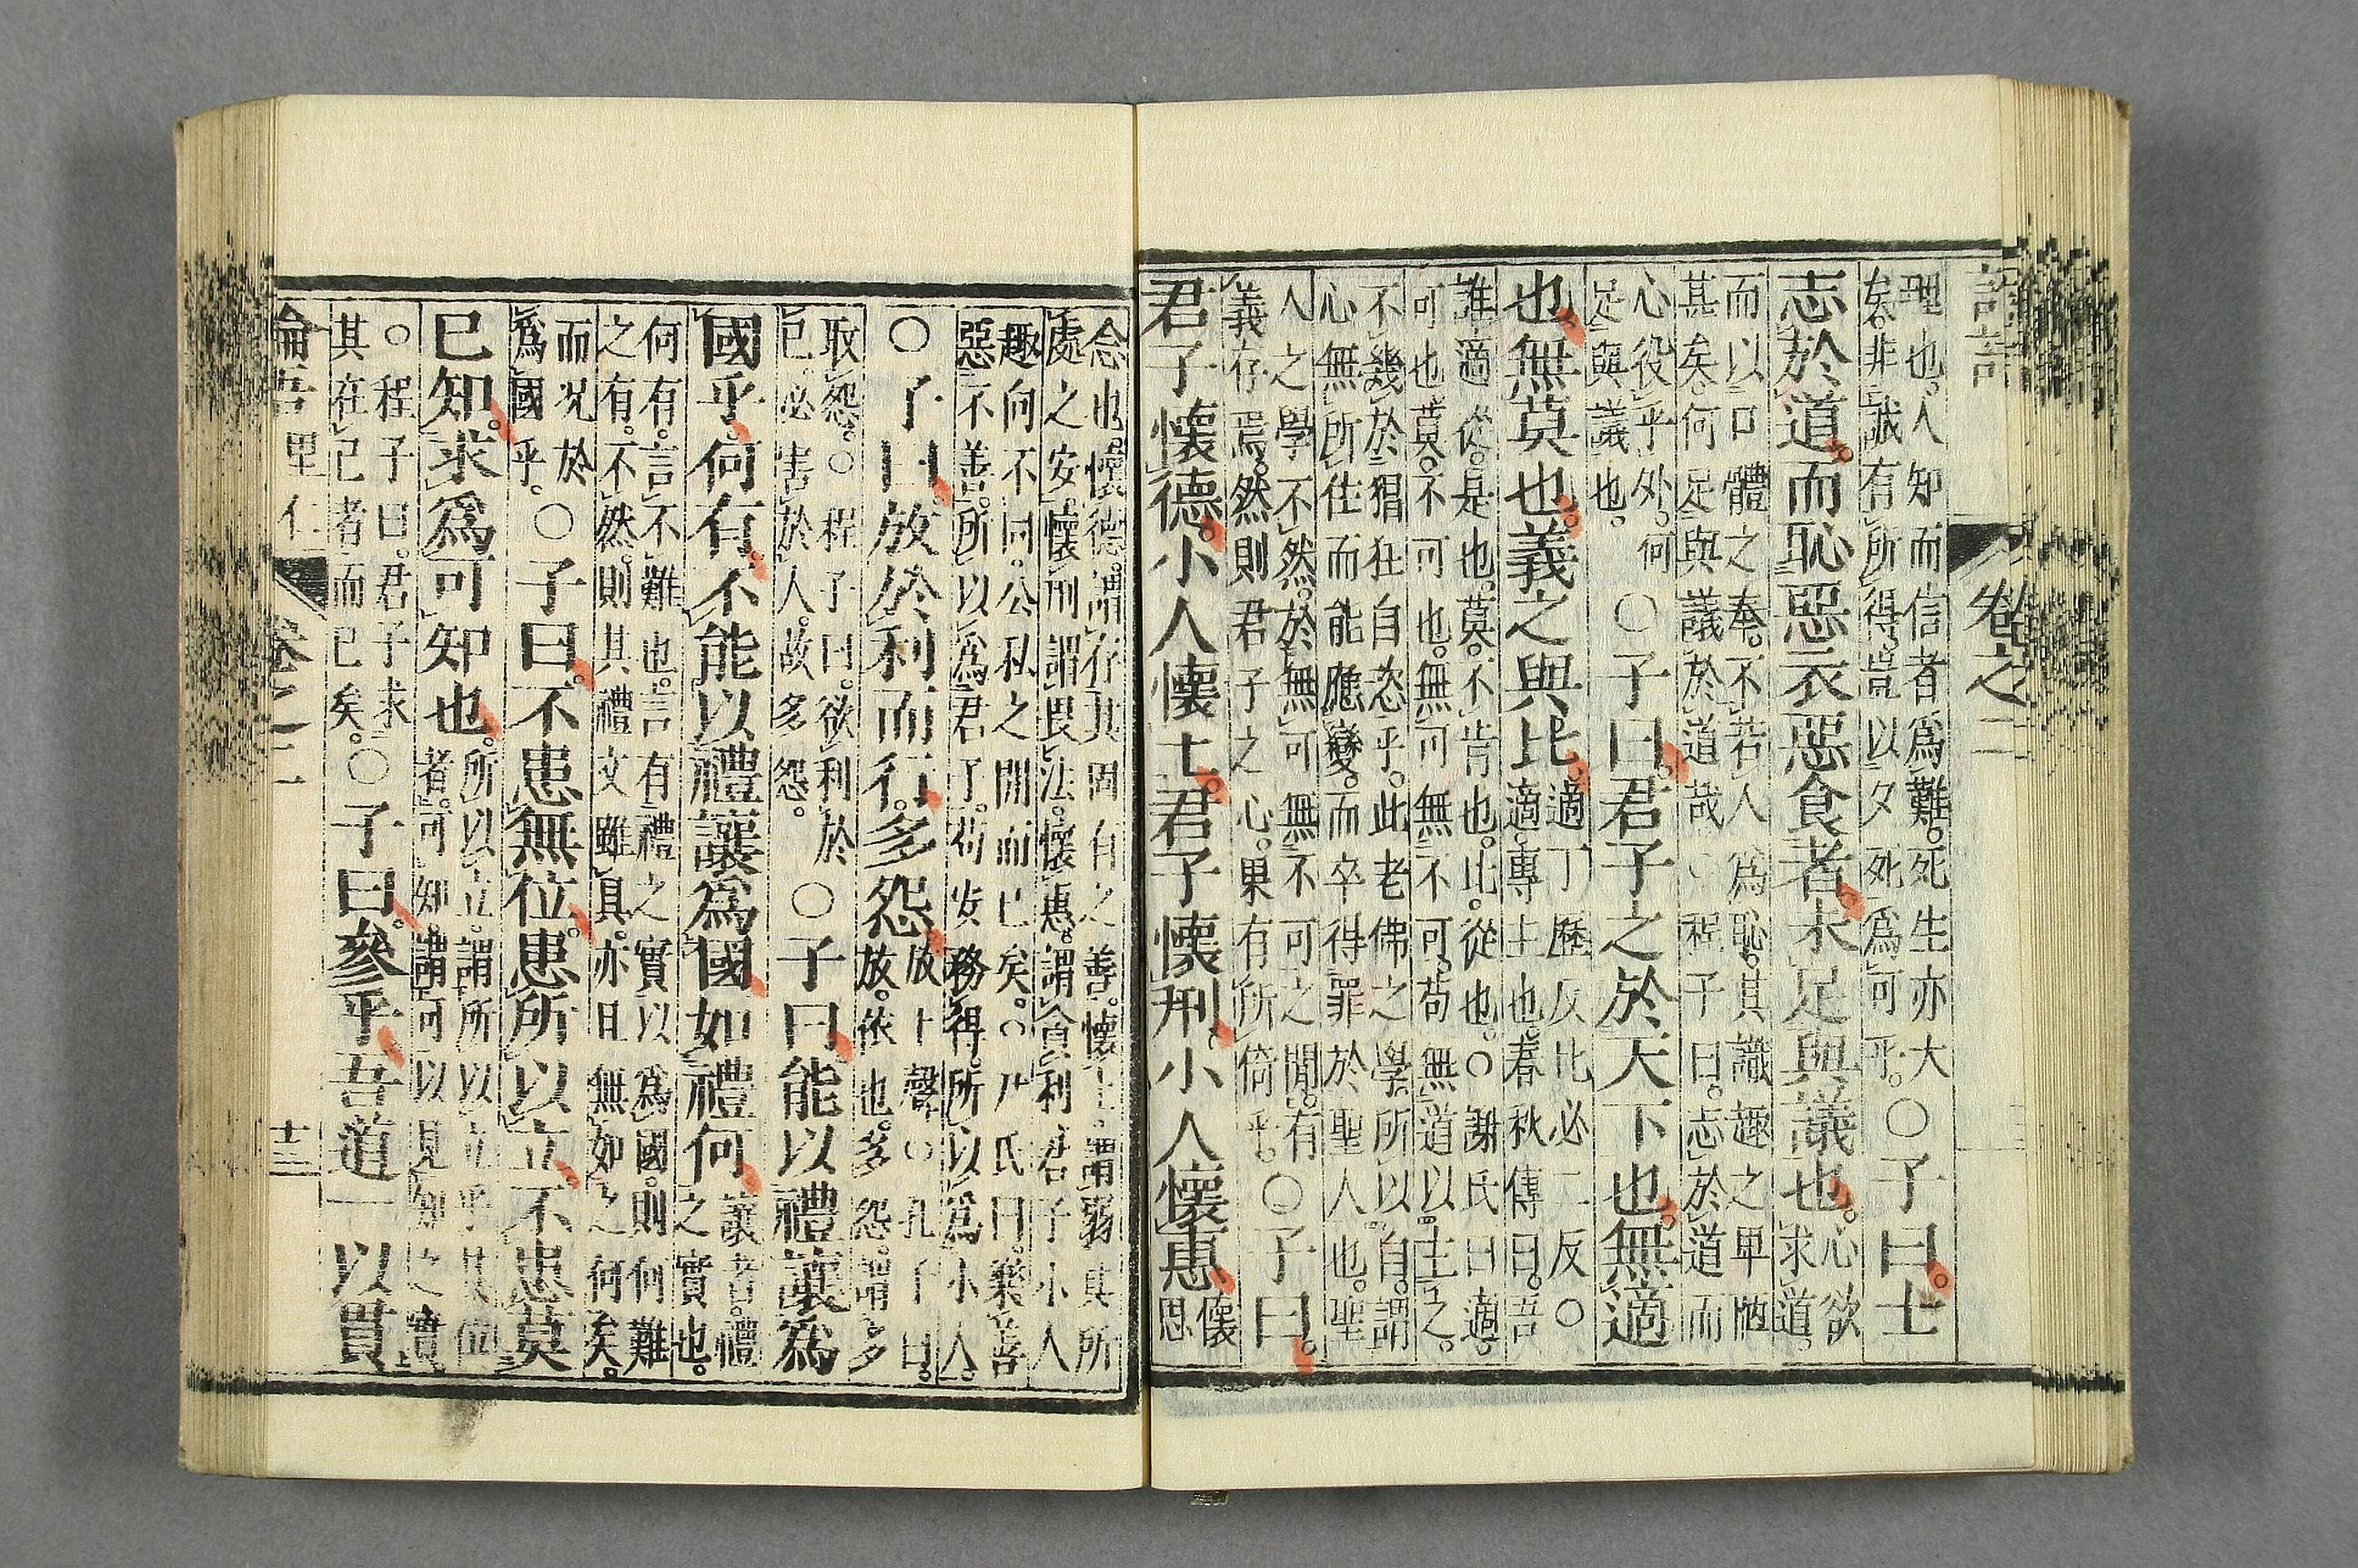 論語
卷之二
理也。人知而信者爲難。死生亦大
矣。非誠有所得。豈以夕死爲可乎。〇子曰。士
志於道。而恥惡衣惡食者。未足與議也。心欲
求道。
而以口體之奉。不若人爲恥。其識趣之卑陋
甚矣。何足與議於道哉〇程子曰。志於道而
心役乎外。何
足與議也。〇子曰。君子之於天下也。無適
也。無莫也。義之與比。適丁歷反比必二反〇
適。專主也。春秋傳曰。吾
誰適從。是也。莫。不肯也。比。從也。〇謝氏曰適。
可也。莫。不可也。無可無不可。苟無道以主之。
不幾於猖狂自恣乎。此老佛之學。所以自謂
心無所住而能應變。而卒得罪於聖人也。聖
人之學不然。於無可無不可之閒。有
義存焉。然則君子之心。果有所倚乎。〇子曰。
君子懷德。小人懷土。君子懷刑。小人懷惠。懷
思
念也。懷德。謂存其固有之善。懷土。謂溺其所
處之安。懷刑。謂畏法。懷惠。謂貪利。君子小人
趣向不同。公私之閒而已矣。〇尹氏曰。樂善
惡不善。所以爲君子。苟安務得。所以爲小人。
〇子曰。放於利而行。多怨。放上聲〇孔子曰。
放。依也。多怨。謂多
取怨。〇程子曰。欲利於
已。必害於人。故多怨。〇子曰。能以禮讓爲
國乎。何有。不能以禮讓爲國。如禮何。讓者。禮
之實也。
何有。言不難也。言有禮之實以爲國。則何難
之有。不然。則其禮文雖具。亦且無如之何矣。
而况於
爲國乎。〇子曰。不患無位。患所以立。不患莫
已知。求爲可知也。所以立。謂所以立乎其位
者。可知。謂可以見知之實。
〇程子曰。君子求
其在己者而已矣。〇子曰。參乎。吾道一以貫
論吾里仁
卷之二
十三